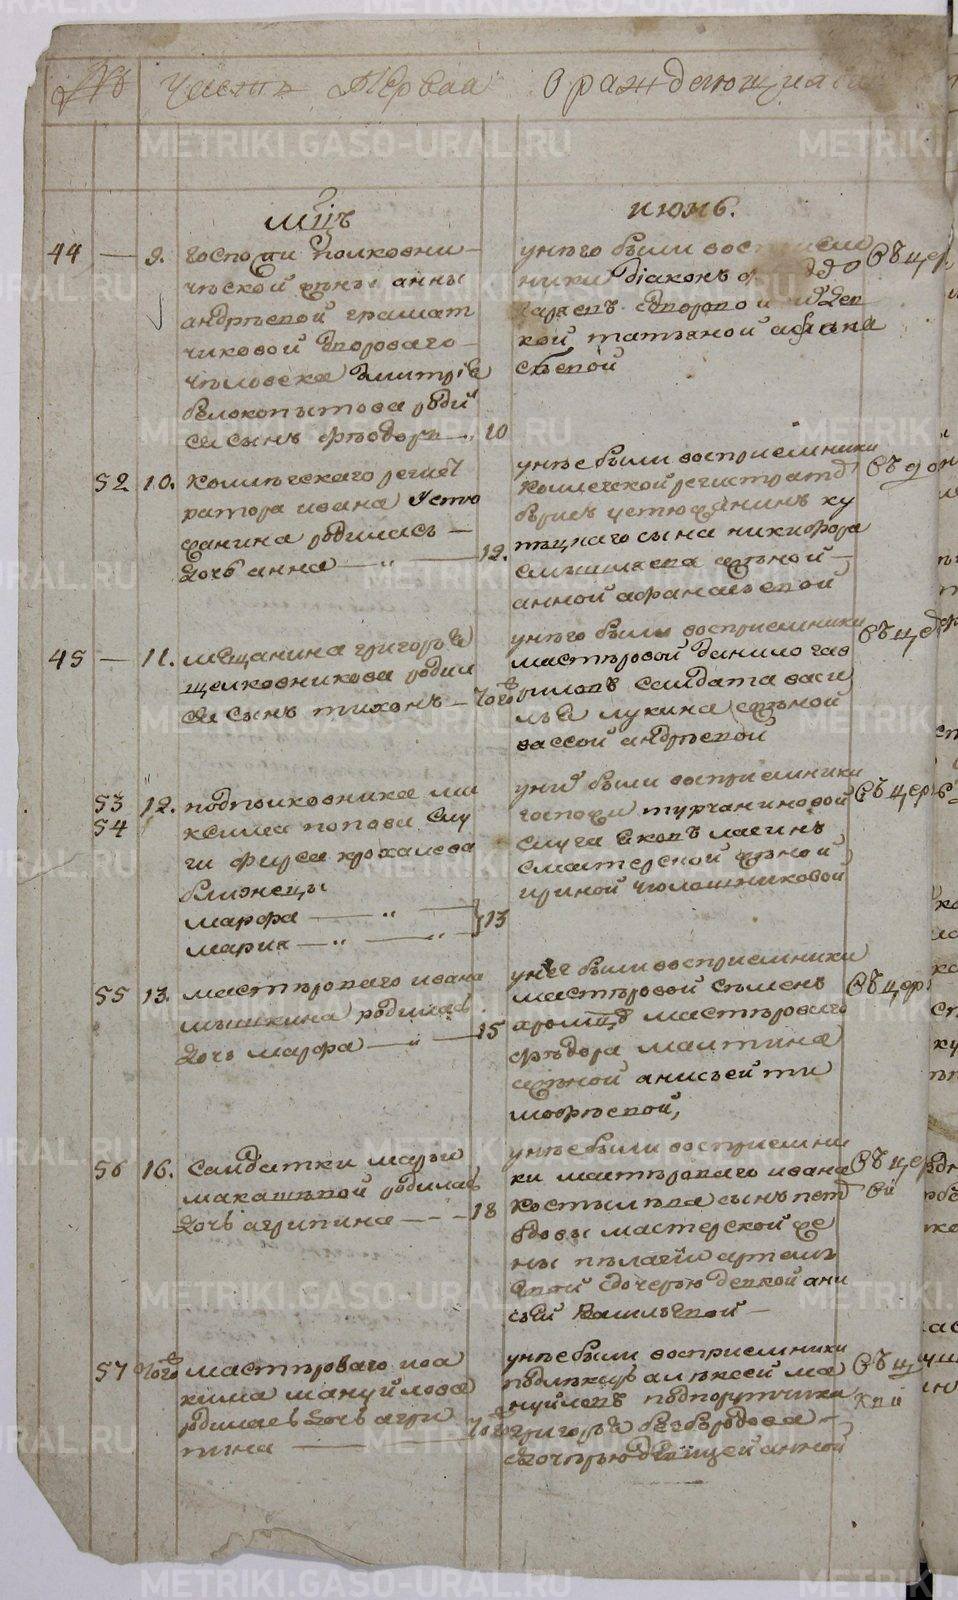 METRIKI.GASO-URAL.RU
№ Часть Первая О раждающихся
мцъ июнь.
44 — 9. госпожи полковни-
ческой жены анны
андреевой грамат
чиковой двороваго
человека дмитрiя
белокопытова роди
ся сынъ федоръ — 10
у него были воспрiем
ники дiаконъ
кой татьяной афана
сьевой
въ цер
52 10. коллежскаго регист
ратора ивана устю
жанина родилась —
дочь анна — 12.
у нее были восприемники
коллежской регистратор
устюжанинъ ку
пецкаго сына никифора
женой —
анной афанасьевой
45 — 11. мещанина григорья
щелковникова родил
ся сынъ тихонъ — того
у него были восприемники
мастеровой данило гав
риловъ солдата васи
лья лукина женой
вассой андреевой
въ це
53 12. подполковника ма
54 ксима попова слу
ги фирса крохалева
близнецы
марфа — „ —
мария — „ — 13
у них были восприемники
госпожи турчаниновой
слуга яковъ лагинъ
смастерской женой
ириной чюлошниковой
въ цер
55 13. мастероваго ивана
мышкина родилась
дочь марфа — 15
у нее были восприемники
мастеровой семенъ
мастероваго
федора малтина
женой анисьей ти
мофеевой,
въ цер
56 16. солдатки марьи
макашевой родилась
дочь агрипина — 18
у нее были восприемни
ки мастероваго ивана
костылева сынъ петр
вдовы мастерской же
ны пелагiи артемь
евой дочерью девкой ани
сьей васильевой —
въ цер
57 того мастероваго иоа
кима мануйлова
родилась дочь агри
пина — того
у нее были восприемники
алексей ма
нуйловъ подпорутчика
григорья безбородова —
дочерью девицей анной
въ ц